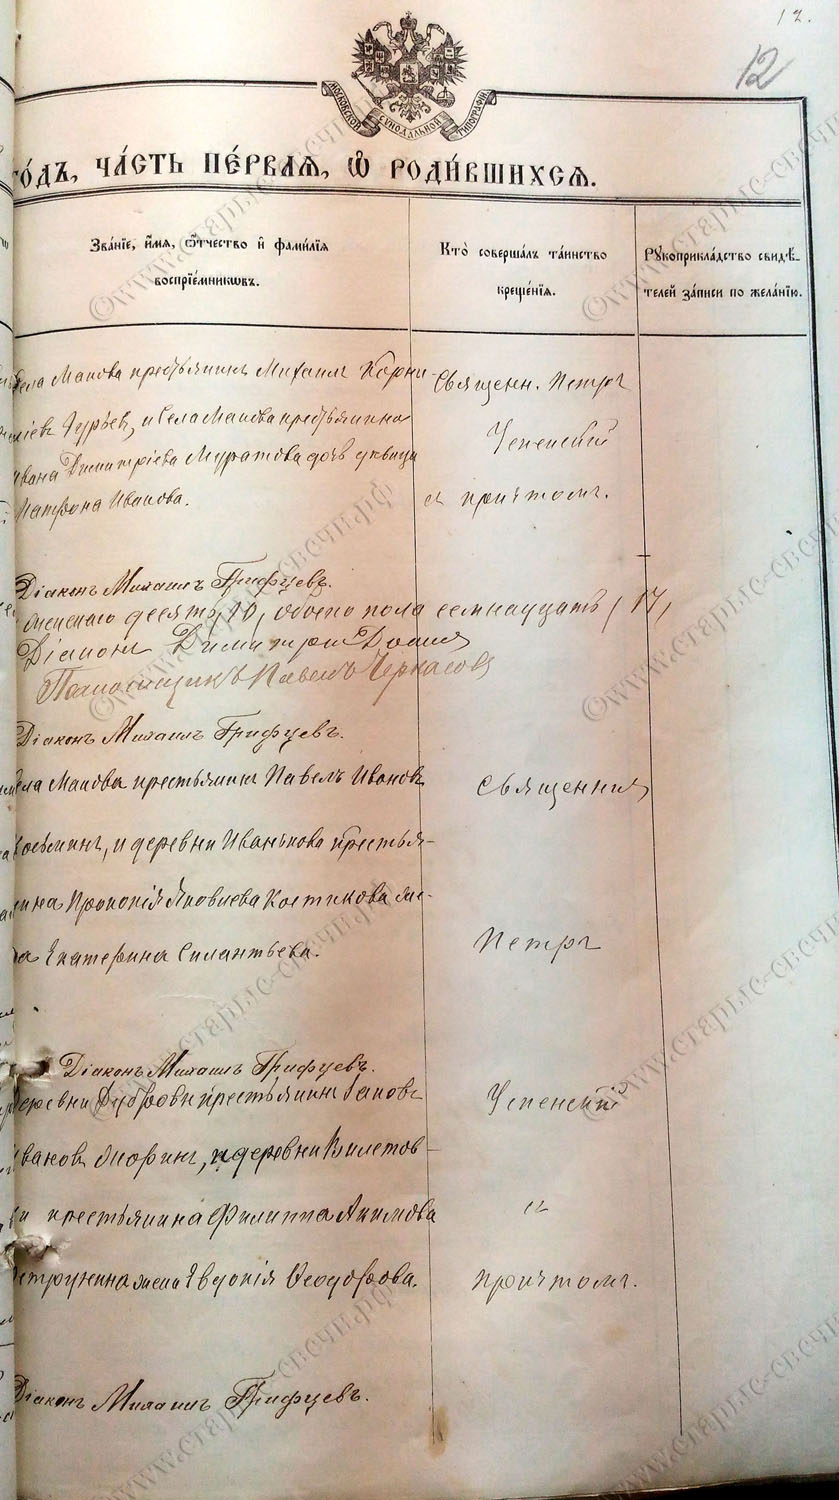 12.
12
МОСКОВСКОЙ СѴНОДАЛЬНОЙ ТИПОГРАФІИ
го́дъ, ча́сть пе́рваѧ, ѡ҆ роди́вшихсѧ.
Зва́нїе, и҆́мѧ, ѻ҆́тчество и҆ фами́лїѧ
воспрїе́мникѡвъ.
Кто̀ соверша́лъ та́инство
креще́нїѧ.
Рꙋкоприкла́дство свидѣ́-
телей за́писи по жела́нїю.
Села Макова крестьянинъ Михаилъ Корни
Гурьевъ, и села Макова крестьянина
Ивана Димитріева Муратова дочь дѣвица
Матрона Иванова.
Священн. Петръ
Успенскій
съ причтомъ.
Діаконъ Михаилъ Грифцевъ.
женскаго десять, 10, обоего пола семнадцать, 17,
Діаконъ Димитрій
Псаломщикъ Павелъ Черкасовъ
Діаконъ Михаилъ Грифцевъ.
села Макова крестьянинъ Павелъ Ивановъ
Козьминъ, и деревни Иванькова крестья-
нина Прокопія Яковлева Костикова же-
на Екатерина Силантьева.
Священникъ
Петръ
Діаконъ Михаилъ Грифцевъ.
деревни Дубровки крестьянинъ
Ивановъ и деревни
крестьянина Филиппа Акимова
жена Евдокія Ѳеодорова.
Успенскій
съ
причтомъ.
Діаконъ Михаилъ Грифцевъ.
©www.старые-свечи.рф